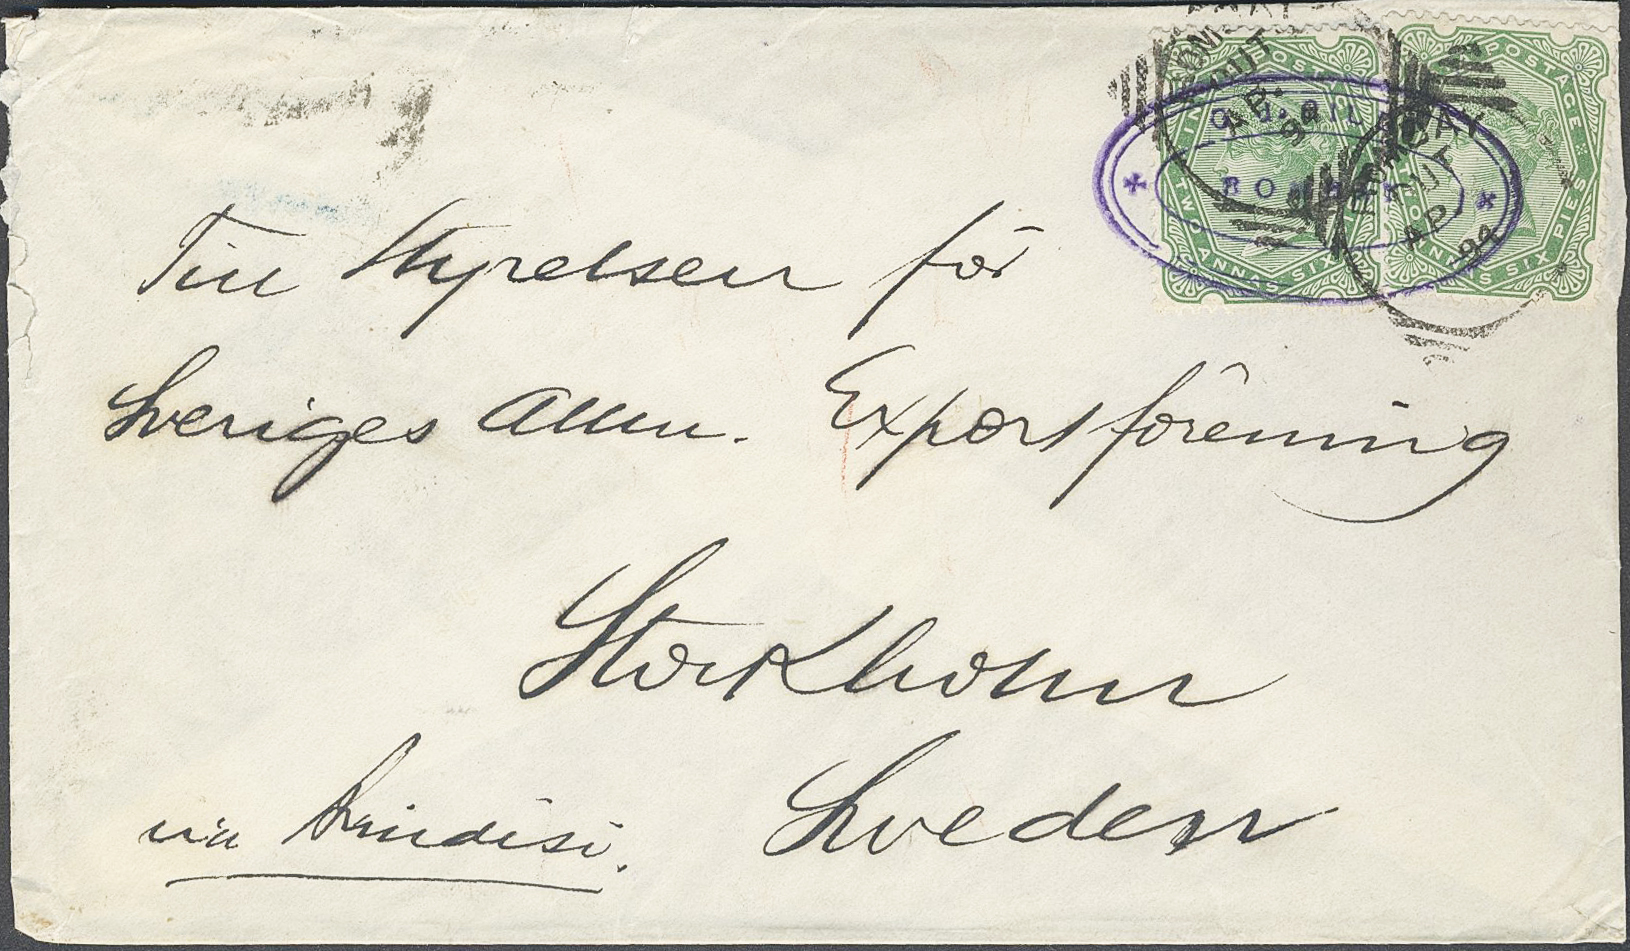 BOMBAY
OUT
AP
BOMBAY
OUT
AP
94
BOMBAY
INDIA POSTAGE
TWO ANNAS SIX PIES
POSTAGE
TWO ANNAS SIX PIES
Till Styrelsen för
Sveriges Allm. Exportförening
Stockholm
via Brindisi. Sweden